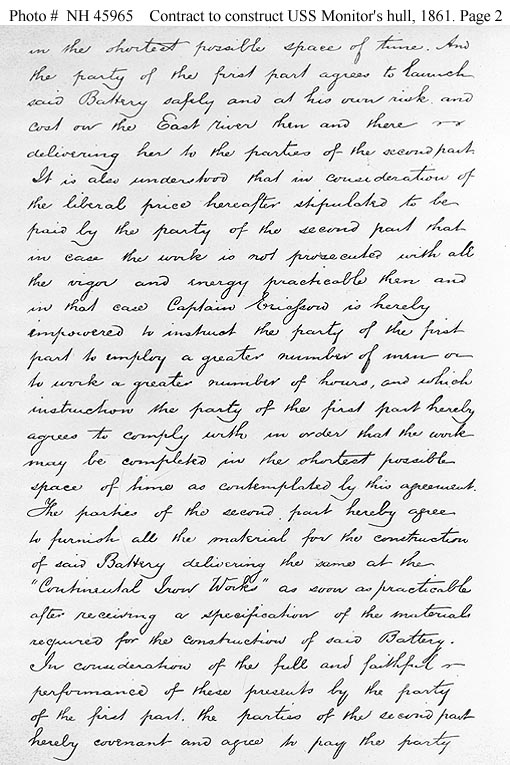 Photo # NH 45965 Contract to construct USS Monitor's hull, 1861. Page 2
in the shortest possible space of time. And
the party of the first part agrees to launch
said Battery safely and at his own risk and
cost on the East river then and there
delivering her to the parties of the second part.
It is also understood that in consideration of
the liberal price hereafter stipulated to be
paid by the party of the second part that
in case the work is not prosecuted with all
the vigor and energy practicable then and
in that case Captain Ericsson is hereby
empowered to instruct the party of the first
part to employ a greater number of men or
to work a greater number of hours, and which
instruction the party of the first part hereby
agrees to comply with in order that the work
may be completed in the shortest possible
space of time as contemplated by this agreement.
The parties of the second part hereby agree
to furnish all the material for the construction
of said Battery delivering the same at the
"Continental Iron Works" as soon as practicable
after receiving a specification of the materials
required for the construction of said Battery.
In consideration of the full and faithful
performance of these presents by the party
of the first part. the parties of the second part
hereby covenant and agree to pay the party